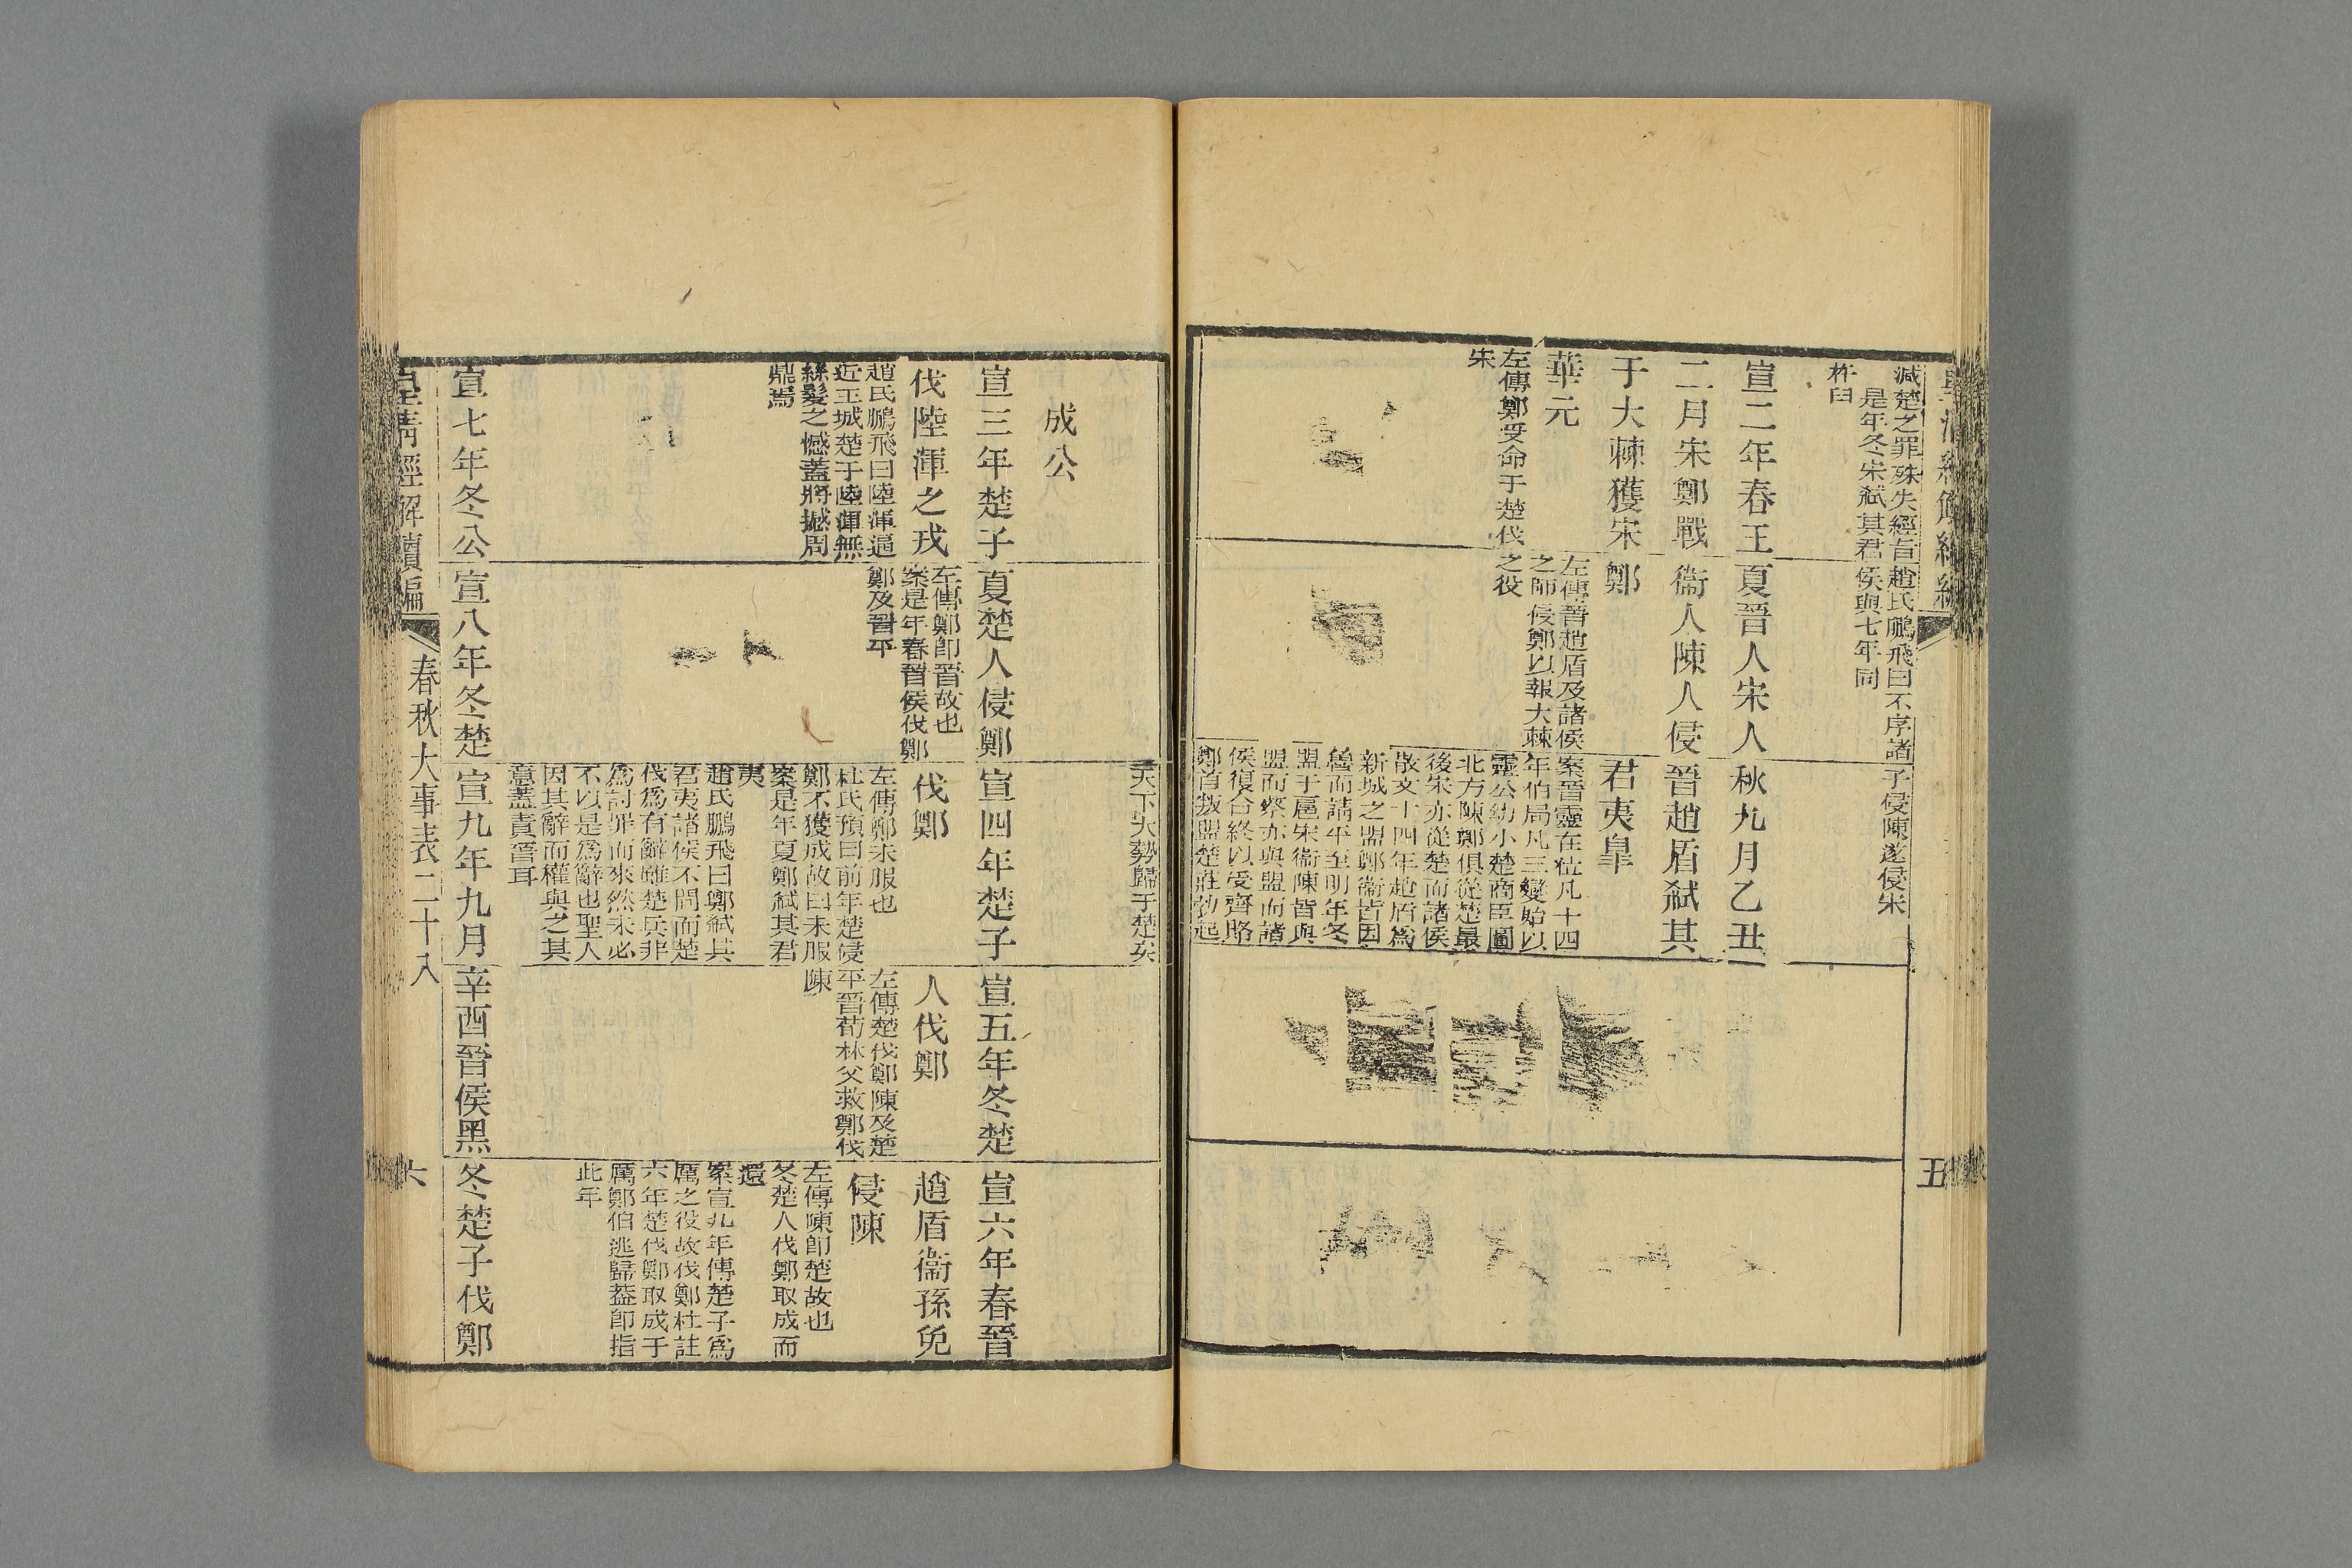 減楚之罪殊失經旨
是年冬宋弒其君
杵臼
趙氏鵬飛曰不序諸
侯與七年同
子侵陳遂侵宋
宣二年春王
二月宋鄭戰
于大棘獲宋
華元
左傳鄭受命于楚伐
宋
夏晉人宋人
衞人陳人侵
鄭
左傳晉趙盾及諸侯
之師侵鄭以報大棘
之役
秋九月乙丑
晉趙盾弒其
君夷皐
案晉靈在位凡十四
年伯局凡三變始以
靈公幼小楚商臣圖
北方陳鄭俱從楚最
後宋亦從楚而諸侯
散文十四年趙盾爲
新城之盟鄭衞皆因
魯而請平至明年冬
盟于扈宋衞陳皆與
盟而蔡亦與盟而諸
侯復合終以受齊賂
鄭首叛盟楚莊勃起
五
天下大勢歸于楚矣
成公
宣三年楚子
伐陸渾之戎
趙氏鵬飛曰陸渾逼
近王城楚于陸渾無
絲髮之憾蓋將撼周
鼎焉
夏楚人侵鄭
左傳鄭卽晉故也
案是年春晉侯伐鄭
鄭及晉平
宣四年楚子
伐鄭
左傳鄭未服也
杜氏預曰前年楚侵
鄭不獲成故曰未服
案是年夏鄭弒其君
夷
趙氏鵬飛曰鄭弒其
君夷諸侯不問而楚
伐爲有辭雖楚兵非
爲討罪而來然未必
不以是爲辭也聖人
因其辭而權與之其
意蓋責晉耳
宣五年冬楚
人伐鄭
左傳楚伐鄭陳及楚
平晉荀林父救鄭伐
陳
宣六年春晉
趙盾衞孫免
侵陳
左傳陳卽楚故也
冬楚人伐鄭取成而
還
案宣九年傳楚子爲
厲之役故伐鄭杜註
六年楚伐鄭取成于
厲鄭伯逃歸蓋卽指
此年
宣七年冬公
宣八年冬楚
宣九年九月
辛酉晉侯黑
冬楚子伐鄭
皇清經解續編
春秋大事表二十八
六